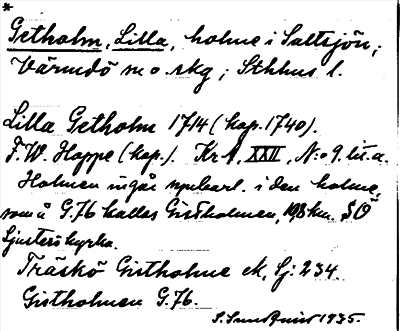 *
Getholm, Lilla, holme i Saltsjön,;
Värmdö sn o. skg; Sthlms l.
Lilla Getholm 1714 (kop. 1740).
F. W. Hoppe (kop.). Kr A, XXII, N:o 9 lit. a.
Holmen ingår uppenbarl. i den holme,
som å G.76 kallas Gistholmen, 1,98 km. SO
Ljusterö kyrka.
Träskö Gistholme ek, Lj: 234.
Gistholmen G.76.
1935.